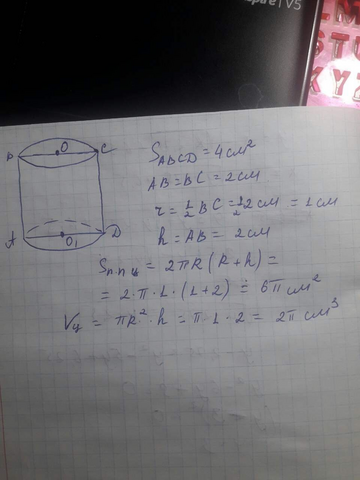 spire | V5
B O C
A O₁ D
S_ABCD = 4 см²
AB = BC = 2 см
r = 1/2 BC = 1/2 2 см = 1 см
h = AB = 2 см
Sп.п.ц = 2πR (R + h) =
= 2·π·1·(1+2) = 6π см²
Vц = πR²·h = π·1·2 = 2π см³